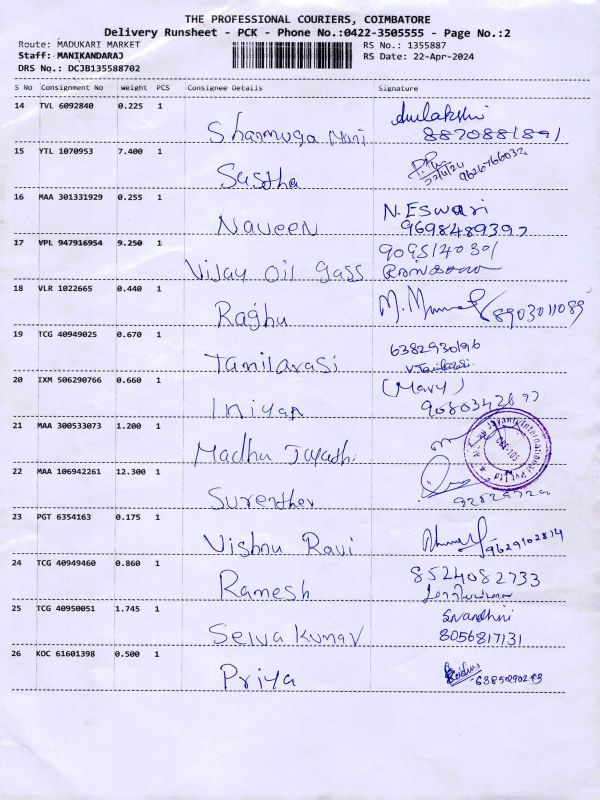 THE PROFESSIONAL COURIERS, COIMBATORE
Delivery Runsheet - PCK - Phone No.:0422-3505555 - Page No.:2
Route: MADUKARI MARKET
RS No.: 1355887
Staff: MANIKANDARAJ
RS Date: 22-Apr-2024
DRS No.: DCJB135588702
S No Consignment No Weight PCS Consignee Details Signature
14 TVL 6092840 0.225 1
Shanmuga Mani
8870881891
15 YTL 1070953 7.400 1
Sastha
22/4/24
9626766032
16 MAA 301331929 0.255 1
N. Eswari
Naveen 9698489397
17 VPL 947916954 9.250 1
9095140301
Vijay Oil gass
18 VLR 1022665 0.440 1
Raghu 8903011089
19 TCG 40949025 0.670 1
6382930196
Tamilarasi V. Tamilarasi
20 IXM 506290766 0.660 1
(Mary)
Iniyan
21 MAA 300533073 1.200 1
Madhu
22 MAA 106942261 12.300 1
Surendher
23 PGT 6354163 0.175 1
Vishnu Ravi 9629102814
24 TCG 40949460 0.860 1
8524082733
Ramesh
25 TCG 40950051 1.745 1
Selva Kumar 8056817131
26 KOC 61601398 0.500 1
Priya